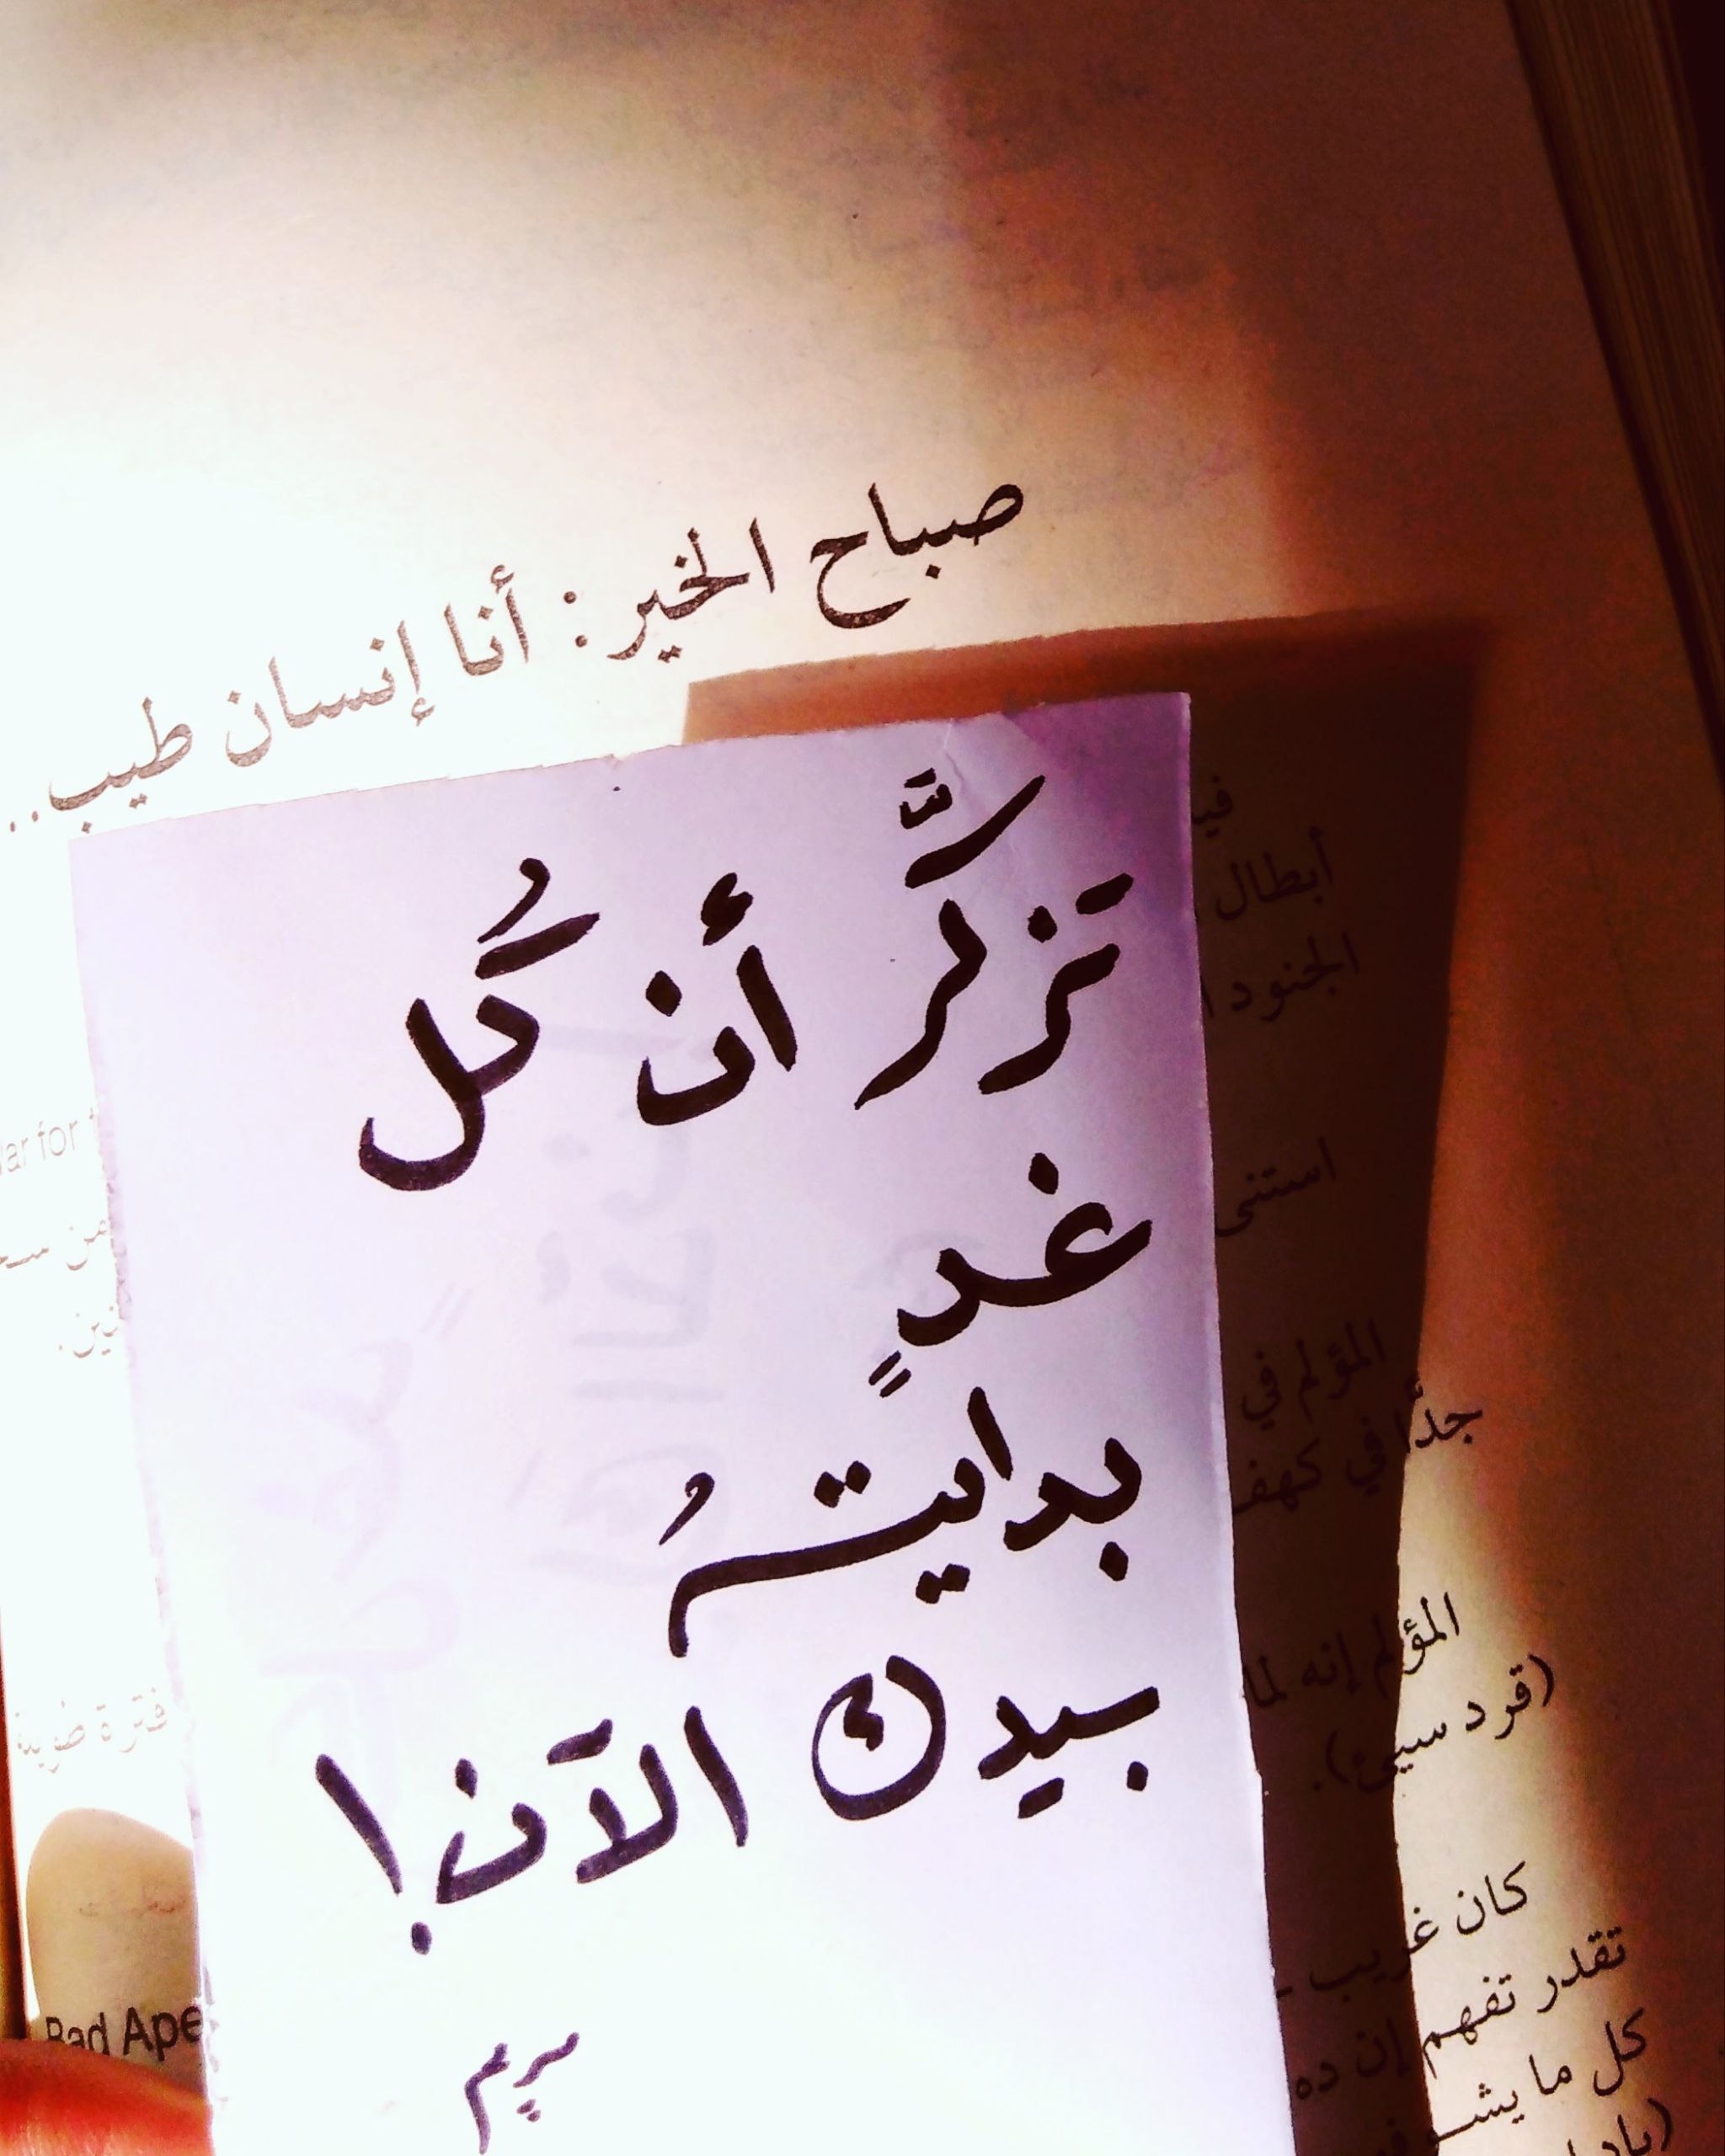 صباح الخير: أنا إنسان طيب..
تزكَّر أن كُل
غدٍ
بدايتهُ
بيدك الآن!
مريم
أبطال
الجنود
استنى
المؤلم في
جدًّا في كهف
المؤلم إنه لما
(قرد سيئ).
كان غريب
تقدر تفهم إن ده
كل ما يشـ
lar for
فترة طويلة
Bad Ape